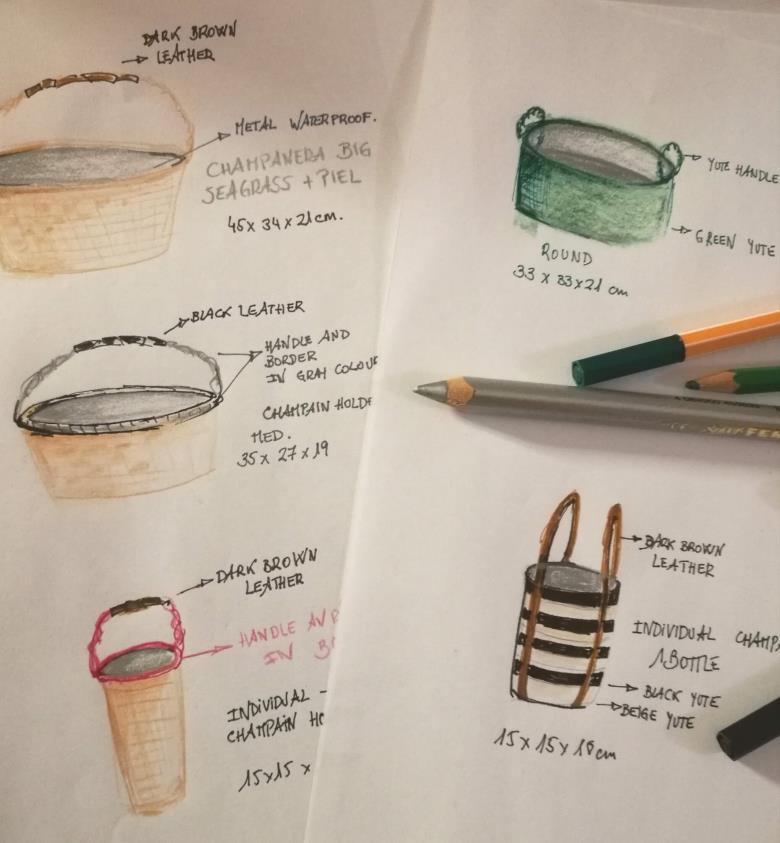 DARK BROWN
LEATHER
METAL WATERPROOF.
CHAMPANERA BIG
SEAGRASS + PIEL
45x 34 x 21 cm.
BLACK LEATHER
HANDLE AND
BORDER
IN GRAY COLOUR
CHAMPAIN HOLDE
MED.
35 x 27 x 19
DARK BROWN
LEATHER
HANDLE
IN
INDIVIDUAL -
CHAMPAIN HO
15x15 x
YUTE HANDLE
GREEN YUTE
ROUND
33 x 33 x 21 cm
DARK BROWN
LEATHER
INDIVIDUAL CHAMPA
1 BOTTLE
BLACK YUTE
BEIGE YUTE
15 x 15 x 18 cm